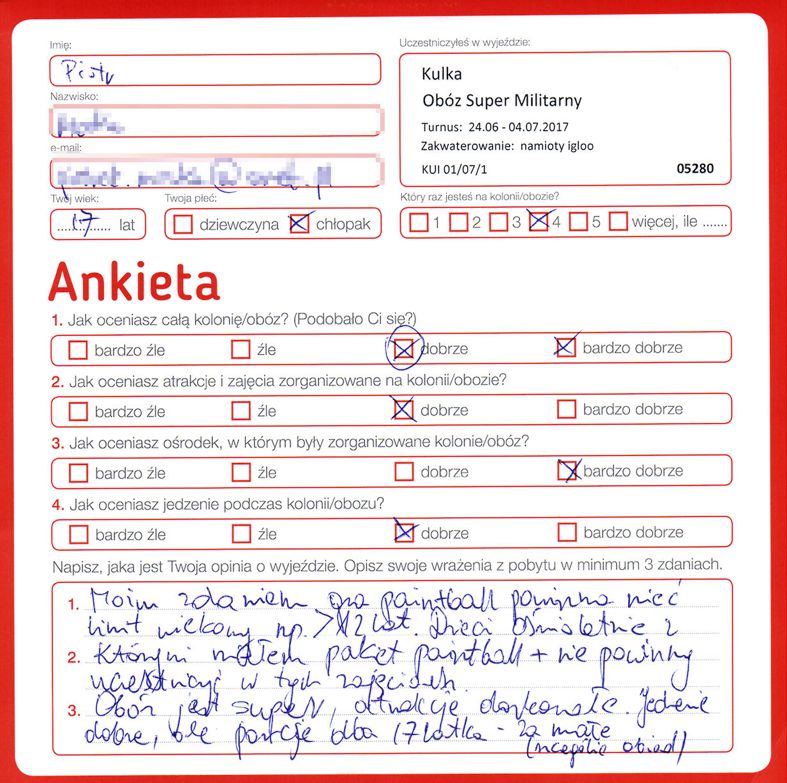 Imię:
Piotr
Nazwisko:
e-mail:
Twój wiek:
17 lat
Twoja płeć:
dziewczyna chłopak
Uczestniczyłeś w wyjeździe:
Kulka
Obóz Super Militarny
Turnus: 24.06 - 04.07.2017
Zakwaterowanie: namioty igloo
KUI 01/07/1 05280
Który raz jesteś na kolonii/obozie?
1 2 3 4 5 więcej, ile .......
Ankieta
1. Jak oceniasz całą kolonię/obóz? (Podobało Ci się?)
bardzo źle źle dobrze bardzo dobrze
2. Jak oceniasz atrakcje i zajęcia zorganizowane na kolonii/obozie?
bardzo źle źle dobrze bardzo dobrze
3. Jak oceniasz ośrodek, w którym były zorganizowane kolonie/obóz?
bardzo źle źle dobrze bardzo dobrze
4. Jak oceniasz jedzenie podczas kolonii/obozu?
bardzo źle źle dobrze bardzo dobrze
Napisz, jaka jest Twoja opinia o wyjeździe. Opisz swoje wrażenia z pobytu w minimum 3 zdaniach.
1. Moim zdaniem gra paintball powinna mieć
limit wiekowy np. >12 lat. Dzieci ośmioletnie z
2. którymi miałem pakiet paintball + nie powinny
uczestniczyć w tych zajęciach.
3. Obóz jest super, atrakcje doskonałe. Jedzenie
dobre, ale porcje dla 17 latka - za małe
(szczególnie obiad)